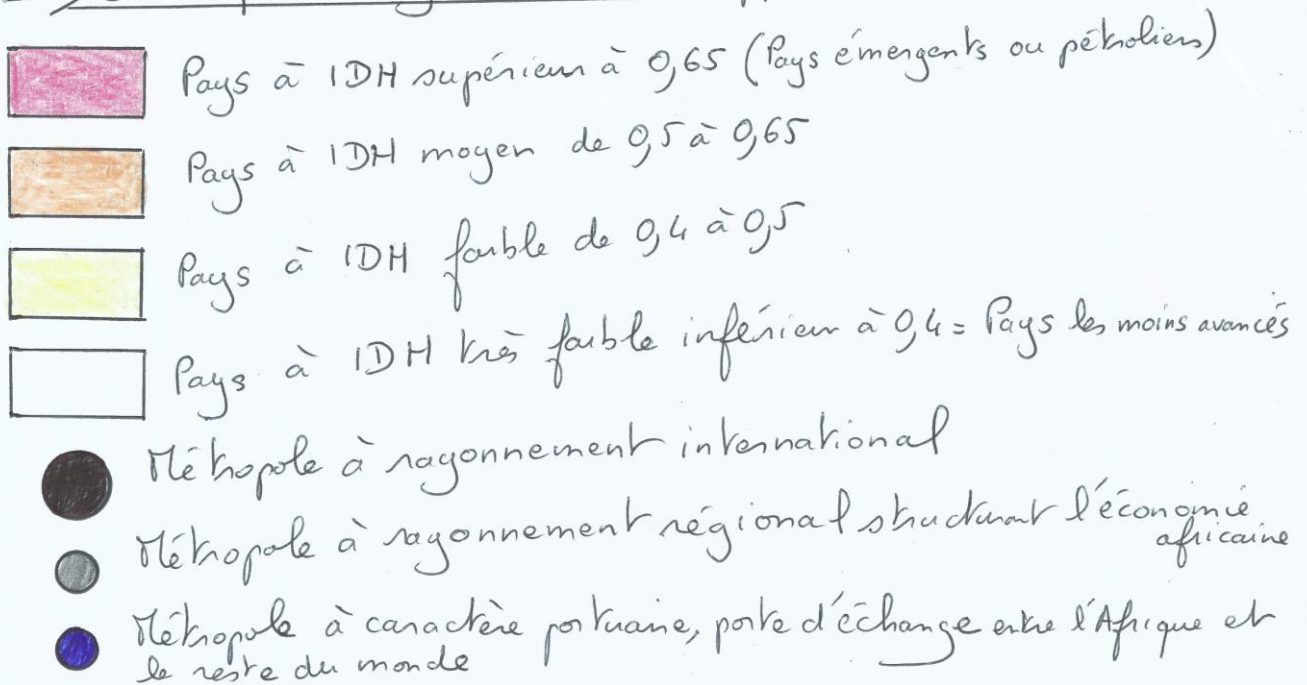 Pays à IDH supérieur à 0,65 (Pays émergents ou pétroliers)
Pays à IDH moyen de 0,5 à 0,65
Pays à IDH faible de 0,4 à 0,5
Pays à IDH très faible inférieur à 0,4 = Pays les moins avancés
Métropole à rayonnement international
Métropole à rayonnement régional structurant l'économie
africaine
Métropole à caractère portuaire, porte d'échange entre l'Afrique et
le reste du monde